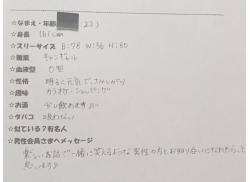 ☆なまえ・年齢 (22)
☆身長 161cm
☆スリーサイズ B:78 W:56 H:80
☆職業 キャンギャル
☆血液型 O型
☆性格 明るく元気でさみしがり
☆趣味 カラオケ・ショッピング
☆お酒 少し飲めます
☆タバコ 吸わない
☆似ている?有名人
☆男性会員さまへメッセージ
楽しいお話で一緒に笑えるような男性の方とお知り合いになれたらと
思います